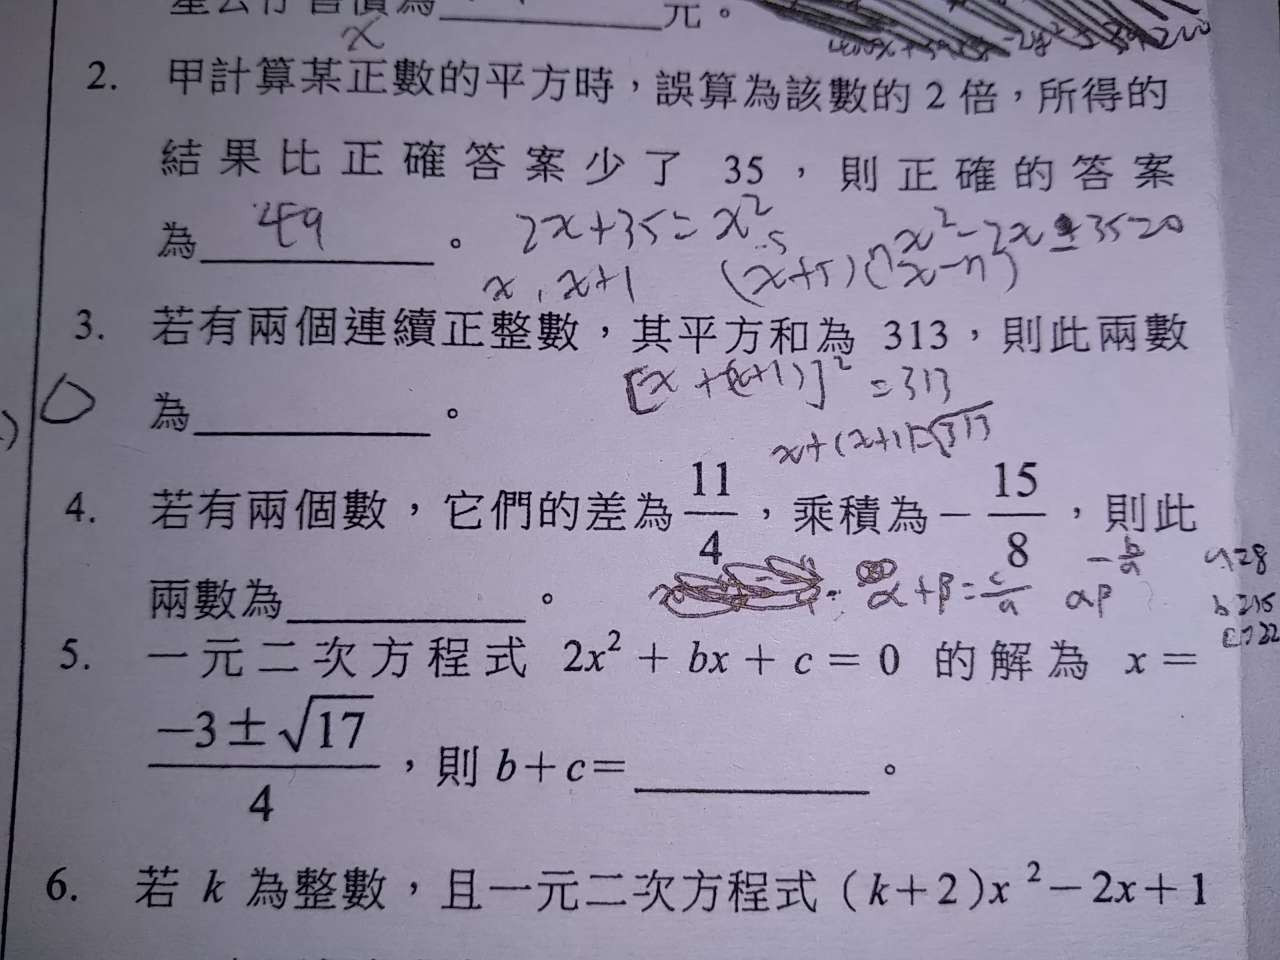 元。
x
2. 甲計算某正數的平方時，誤算為該數的 2 倍，所得的
結果比正確答案少了 35，則正確的答案
為 49 。 2x+35=x² x²-2x-35=0
x, x+1 (x+5)(x-7)
3. 若有兩個連續正整數，其平方和為 313，則此兩數
為＿＿＿＿。 [x+(x+1)]²=313
x+(x+1)=√313
4. 若有兩個數，它們的差為 11/4，乘積為 -15/8，則此
兩數為＿＿＿＿。 α+β=c/a αβ -b/a
5. 一元二次方程式 2x² + bx + c = 0 的解為 x =
(-3±√17)/4，則 b+c=＿＿＿＿。
6. 若 k 為整數，且一元二次方程式 (k+2)x²-2x+1